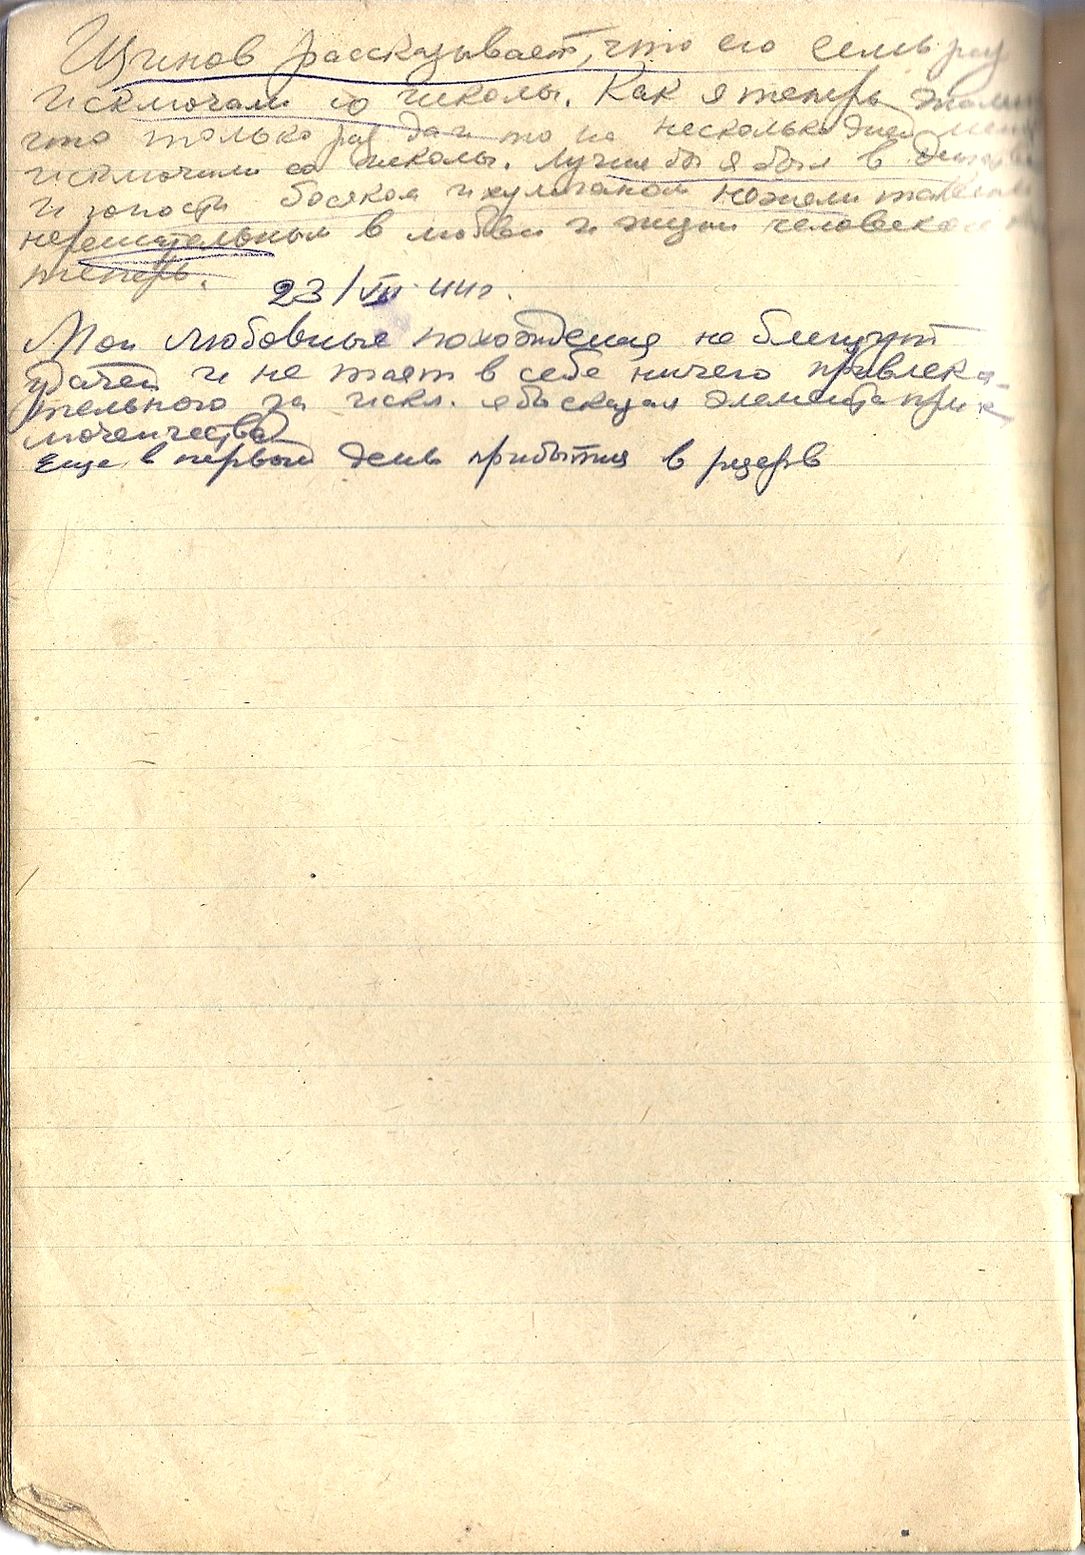 Щинов рассказывает, что его семь раз
исключали со школы. Как я теперь жалею
что только раз да и то на несколько дней меня
исключили со школы. Лучше бы я был в детстве
и юности босяком и хулиганом нежели таким
нерешительным в любви и жизни человеком
теперь.
23/VII 44 г.
Мои любовные похождения не блещут
удачей и не таят в себе ничего привлека-
тельного за искл. я бы сказал элемента прик
люченчества
Еще в первый день прибытия в резерв